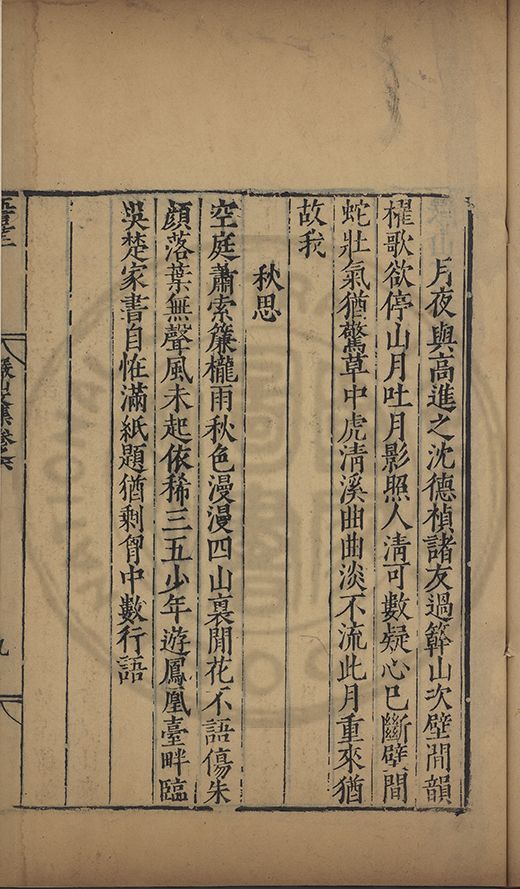 月夜與高進之沈德楨諸友過簳山次壁間韻
櫂歌欲停山月吐月影照人清可數疑心已斷壁間
蛇壯氣猶驚草中虎清溪曲曲淡不流此月重來猶
故我
秋思
空庭蕭索簾櫳雨秋色漫漫四山裏閒花不語傷朱
顔落葉無聲風未起依稀三五少年遊鳳凰臺畔臨
吳楚家書自恠滿紙題猶剩胷中數行語